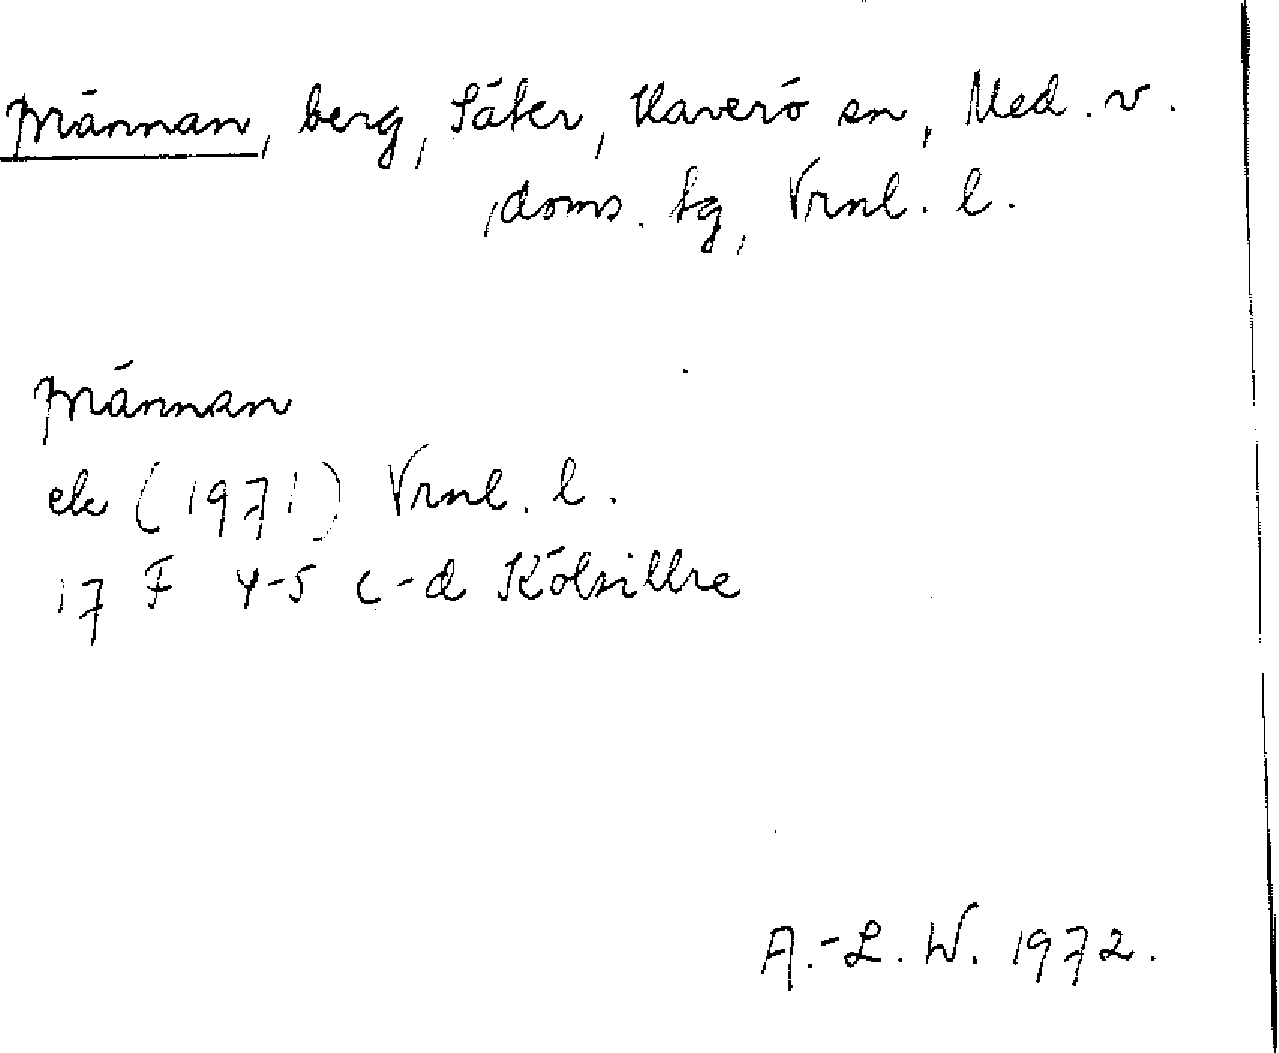 Prännan, berg, Säter, Haverö sn, Med. v.
doms. tg, Vrnl. l.
Prännan
ek (1971) Vrnl. l.
17 F 4-5 c-d Kölsillre
A.-L. W. 1972.